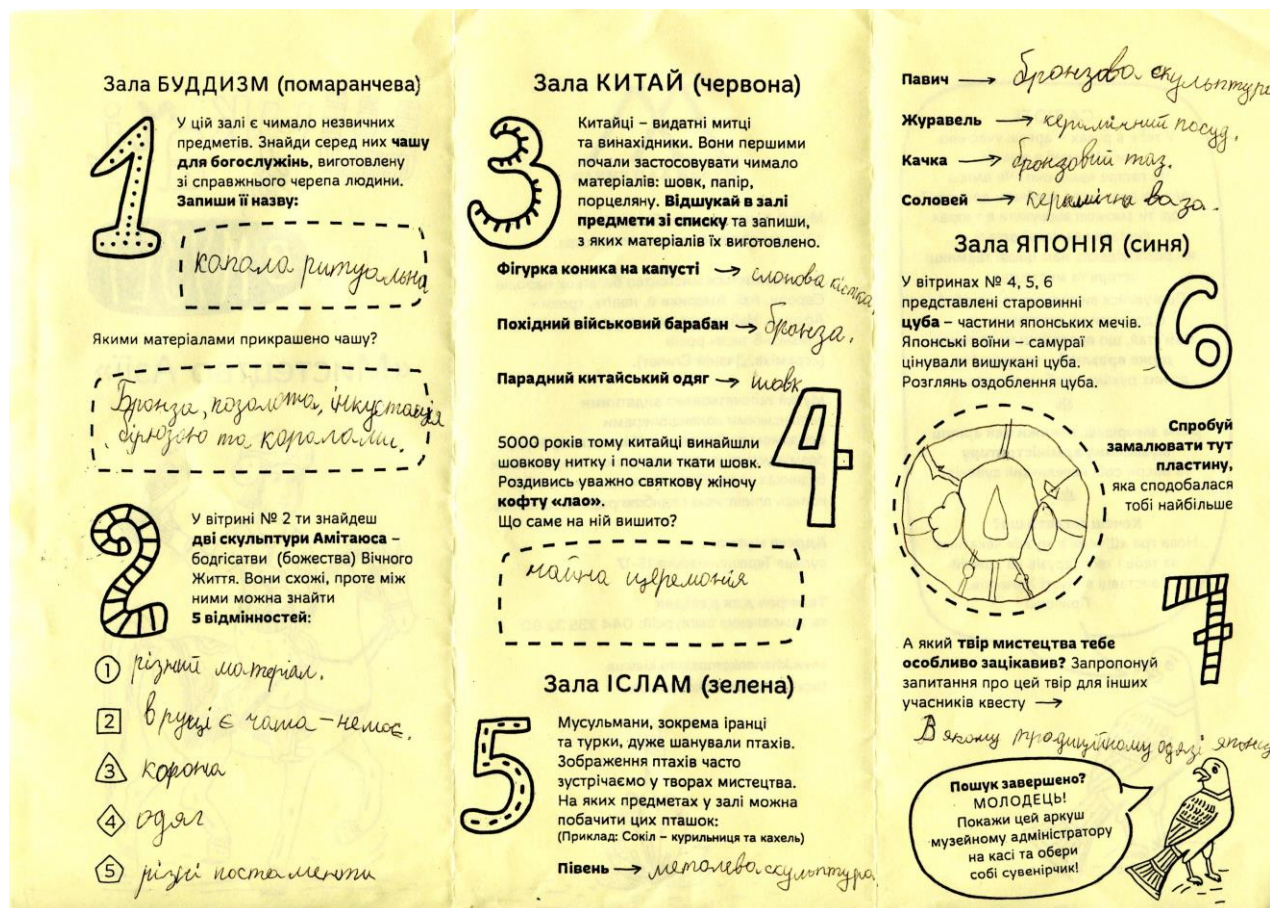 Зала БУДДИЗМ (помаранчева)
1
У цій залі є чимало незвичних
предметів. Знайди серед них чашу
для богослужінь, виготовлену
зі справжнього черепа людини.
Запиши її назву:
капала ритуальна
Якими матеріалами прикрашено чашу?
Бронза, позолота, інкустація
бірюзою та коралами.
2
У вітрині № 2 ти знайдеш
дві скульптури Амітаюса –
бодгісатви (божества) Вічного
Життя. Вони схожі, проте між
ними можна знайти
5 відмінностей:
1 різний матеріал.
2 в руці є чаша – немає.
3 корона
4 одяг
5 різні постаменти
Зала КИТАЙ (червона)
3
Китайці – видатні митці
та винахідники. Вони першими
почали застосовувати чимало
матеріалів: шовк, папір,
порцеляну. Відшукай в залі
предмети зі списку та запиши,
з яких матеріалів їх виготовлено.
Фігурка коника на капусті → слонова кістка,
Похідний військовий барабан → бронза.
Парадний китайський одяг → шовк
4
5000 років тому китайці винайшли
шовкову нитку і почали ткати шовк.
Роздивись уважно святкову жіночу
кофту «лао».
Що саме на ній вишито?
чайна церемонія
Зала ІСЛАМ (зелена)
5
Мусульмани, зокрема іранці
та турки, дуже шанували птахів.
Зображення птахів часто
зустрічаємо у творах мистецтва.
На яких предметах у залі можна
побачити цих пташок:
(Приклад: Сокіл – курильниця та кахель)
Півень → металева скульптура
Павич → бронзова скульптура
Журавель → керамічний посуд.
Качка → бронзовий таз.
Соловей → керамічна ваза.
Зала ЯПОНІЯ (синя)
6
У вітринах № 4, 5, 6
представлені старовинні
цуба – частини японських мечів.
Японські воїни – самураї
цінували вишукані цуба.
Розглянь оздоблення цуба.
Спробуй
замалювати тут
пластину,
яка сподобалася
тобі найбільше
7
А який твір мистецтва тебе
особливо зацікавив? Запропонуй
запитання про цей твір для інших
учасників квесту →
В якому традиційному одязі
Пошук завершено?
МОЛОДЕЦЬ!
Покажи цей аркуш
музейному адміністратору
на касі та обери
собі сувенірчик!